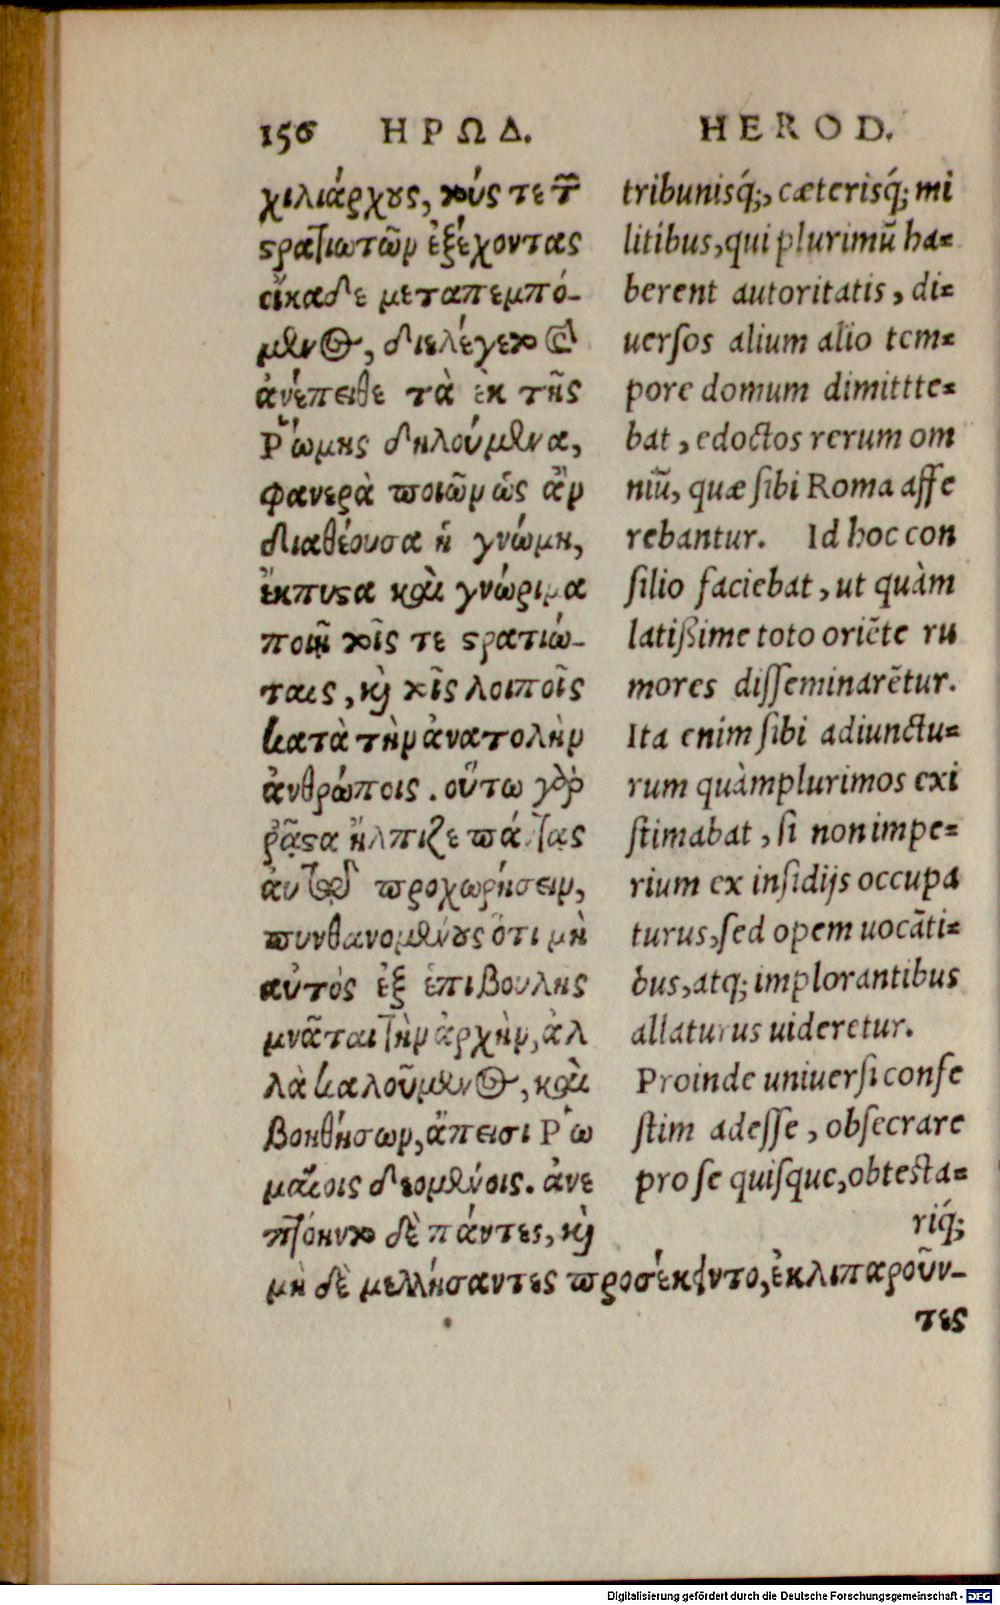 156 ΗΡΩΔ.
χιλιάρχους, τούς τε τῶν
στρατιωτῶν ἐξέχοντας
οἴκαδε μεταπεμπό-
μενος, διελέγετο καὶ
ἀνέπειθε τὰ ἐκ τῆς
Ῥώμης δηλούμενα,
φανερὰ ποιῶν ὡς ἂν
διαθέουσα ἡ γνώμη,
ἔκπυστα καὶ γνώριμα
ποιῇ τοῖς τε στρατιώ-
ταις, καὶ τοῖς λοιποῖς
κατὰ τὴν ἀνατολὴν
ἀνθρώποις. οὕτω γὰρ
ῥᾷστα ἤλπιζε πάντας
αὐτῷ προχωρήσειν,
πυνθανομένους ὅτι μὴ
αὐτὸς ἐξ ἐπιβουλῆς
μνᾶται τὴν ἀρχὴν, ἀλ
λὰ καλούμενος, καὶ
βοηθήσων, ἄπεισι Ῥω
μαίοις δεομένοις. ἀνε
πτόηντο δὲ πάντες, καὶ
μὴ δὲ μελλήσαντες προσέκειντο, ἐκλιπαροῦν-
τες
HEROD.
tribunisq́;, cæterisq́; mi
litibus, qui plurimū ha=
berent autoritatis, di=
uersos alium alio tem=
pore domum dimittte=
bat, edoctos rerum om
niū, quæ sibi Roma affe
rebantur. Id hoc con
silio faciebat, ut quàm
latißime toto oriēte ru
mores disseminarētur.
Ita enim sibi adiunctu=
rum quàmplurimos exi
stimabat, si non impe=
rium ex insidijs occupa
turus, sed opem uocāti=
bus, atq; implorantibus
allaturus uideretur.
Proinde uniuersi confe
stim adesse, obsecrare
pro se quisque, obtesta=
riq́;
Digitalisierung gefördert durch die Deutsche Forschungsgemeinschaft - DFG